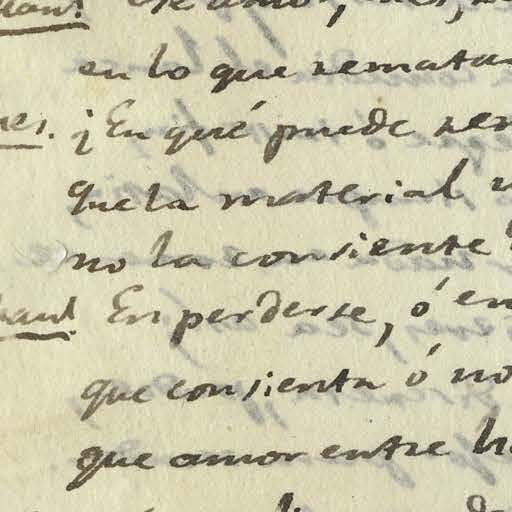 en lo que remata
¿En qué puede
que la material
no la consiente
En perderse, ó en
que consienta ó no
que amor entre